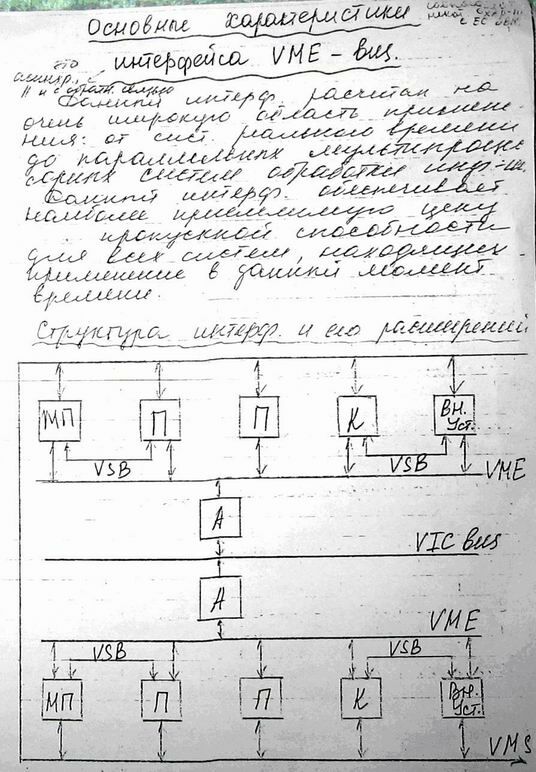 Основные характеристики
интерфейса VME-bus.
это
асинхр.
Данный интерф. расчитан на
очень широкую область примене-
ния: от сист. реального времени
до параллельных мультипроцес
сорных систем обработки инф-ии.
Данный интерф. обеспечивает
наиболее приемлемую цену
пропускной способности
для всех систем, находящих
применение в данный момент
времени.
Структура интерф. и его расширений
МП П П К ВН. Уст.
VSB VSB VME
А
VIC bus
А
VME
VSB VSB
МП П П К ВН. Уст.
VMS